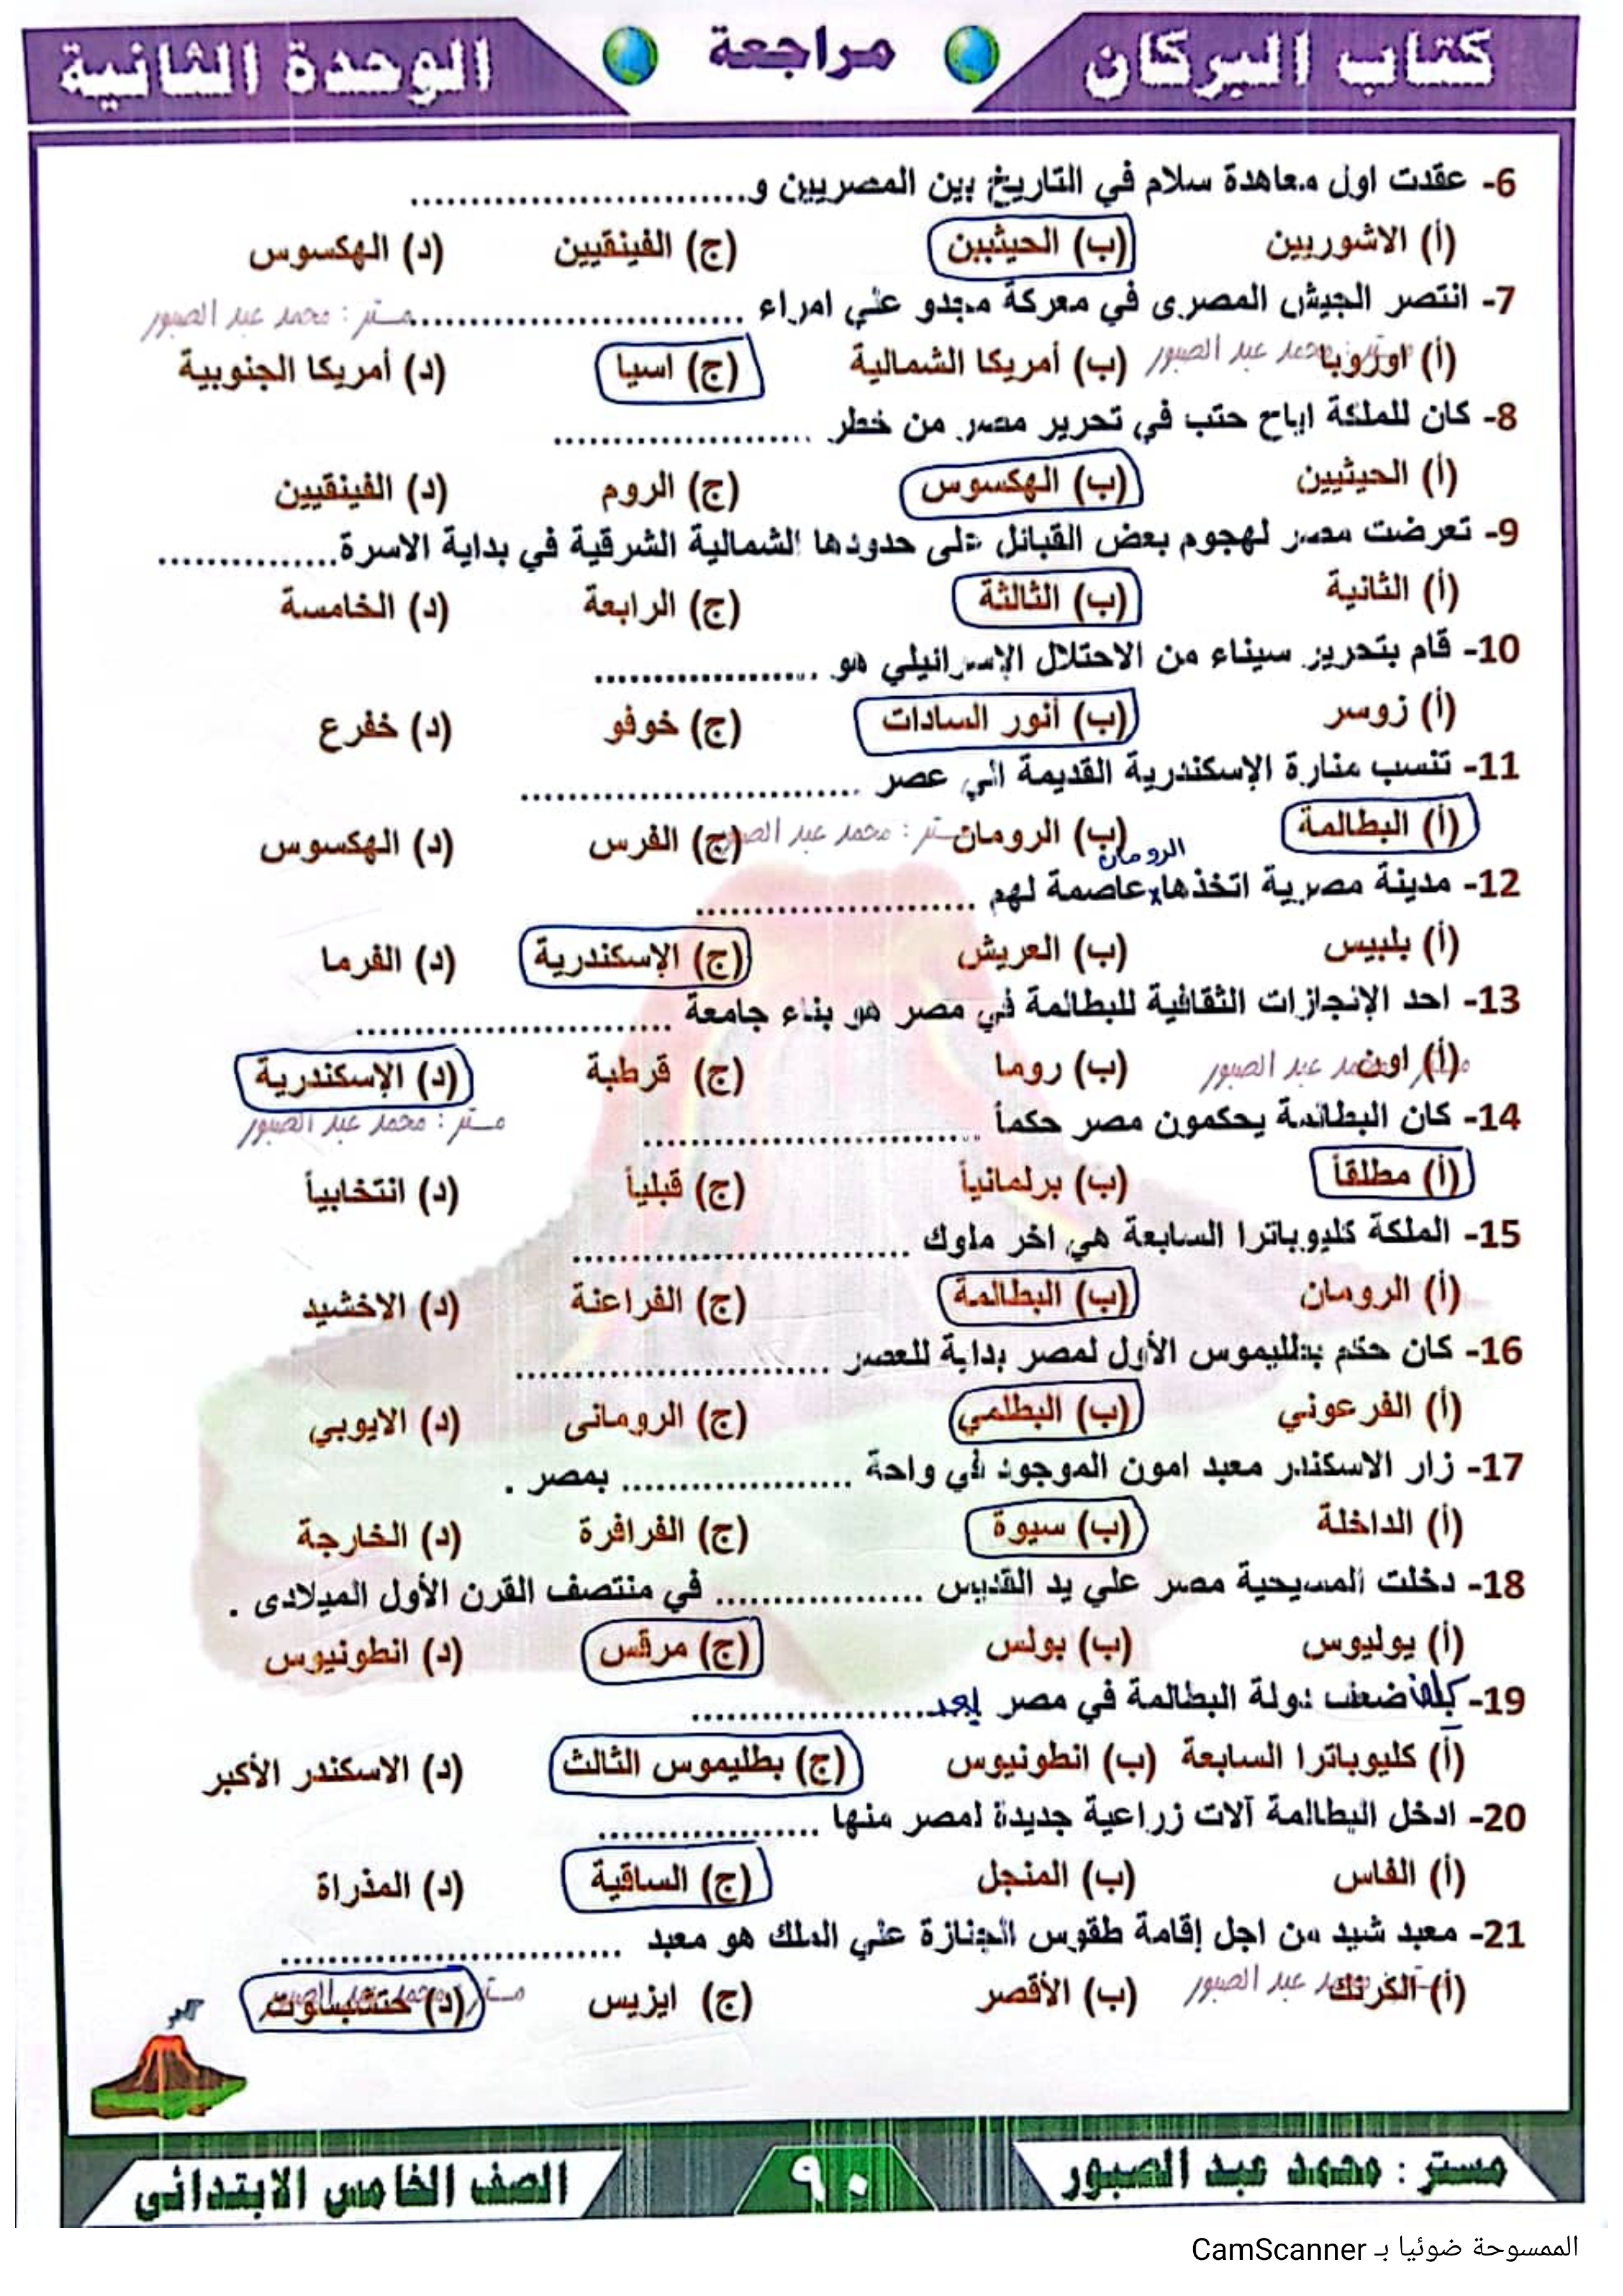 كتاب البركان
مراجعة
الوحدة الثانية
6- عقدت اول معاهدة سلام في التاريخ بين المصريين و..............................
(أ) الاشوريين (ب) الحيثيين (ج) الفينقيين (د) الهكسوس
7- انتصر الجيش المصرى في معركة مجدو علي امراء ..............................
مستر : محمد عبد الصبور
(أ) اوروبا (ب) أمريكا الشمالية (ج) اسيا (د) أمريكا الجنوبية
مستر : محمد عبد الصبور
8- كان للملكة اياح حتب في تحرير مصر من خطر ........................
(أ) الحيثيين (ب) الهكسوس (ج) الروم (د) الفينقيين
9- تعرضت مصر لهجوم بعض القبائل على حدودها الشمالية الشرقية في بداية الاسرة................
(أ) الثانية (ب) الثالثة (ج) الرابعة (د) الخامسة
10- قام بتحرير سيناء من الاحتلال الإسرائيلي هو ....................
(أ) زوسر (ب) أنور السادات (ج) خوفو (د) خفرع
11- تنسب منارة الإسكندرية القديمة الي عصر ..............................
(أ) البطالمة (ب) الرومان (ج) الفرس (د) الهكسوس
مستر : محمد عبد الصبور
الرومان
12- مدينة مصرية اتخذها عاصمة لهم .........................
(أ) بلبيس (ب) العريش (ج) الإسكندرية (د) الفرما
13- احد الإنجازات الثقافية للبطالمة في مصر هو بناء جامعة ............................
(أ) اون (ب) روما (ج) قرطبة (د) الإسكندرية
مستر : محمد عبد الصبور
مستر : محمد عبد الصبور
14- كان البطالمة يحكمون مصر حكماً ..............................
(أ) مطلقاً (ب) برلمانياً (ج) قبلياً (د) انتخابياً
15- الملكة كليوباترا السابعة هي اخر ملوك ..............................
(أ) الرومان (ب) البطالمة (ج) الفراعنة (د) الاخشيد
16- كان حكم بطليموس الأول لمصر بداية للعصر ............................
(أ) الفرعوني (ب) البطلمي (ج) الرومانى (د) الايوبي
17- زار الاسكندر معبد امون الموجود في واحة .................... بمصر .
(أ) الداخلة (ب) سيوة (ج) الفرافرة (د) الخارجة
18- دخلت المسيحية مصر علي يد القديس .................. في منتصف القرن الأول الميلادى .
(أ) يوليوس (ب) بولس (ج) مرقس (د) انطونيوس
19- ضعف دولة البطالمة في مصر بعد.....................
(أ) كليوباترا السابعة (ب) انطونيوس (ج) بطليموس الثالث (د) الاسكندر الأكبر
20- ادخل البطالمة آلات زراعية جديدة لمصر منها ....................
(أ) الفاس (ب) المنجل (ج) الساقية (د) المذراة
21- معبد شيد من اجل إقامة طقوس الجنازة علي الملك هو معبد ..............................
(أ) الكرنك (ب) الأقصر (ج) ايزيس (د) حتشبسوت
مستر : محمد عبد الصبور
مستر : محمد عبد الصبور
مستر : محمد عبد الصبور
٩٠
الصف الخامس الابتدائى
الممسوحة ضوئيا بـ CamScanner